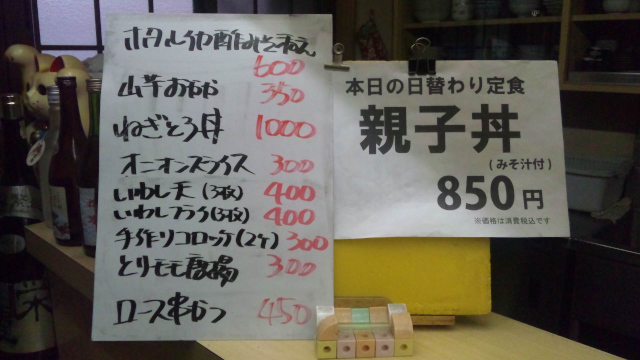 ホタルイカ酢みそ和え
600
山芋おろし 350
ねぎとろ丼 1000
オニオンスライス 300
いわし天(3枚) 400
いわしフライ(3枚) 400
手作りコロッケ(2ケ) 300
とりモモ唐揚 300
ロース串かつ 450
本日の日替わり定食
親子丼
(みそ汁付)
850円
※価格は消費税込です